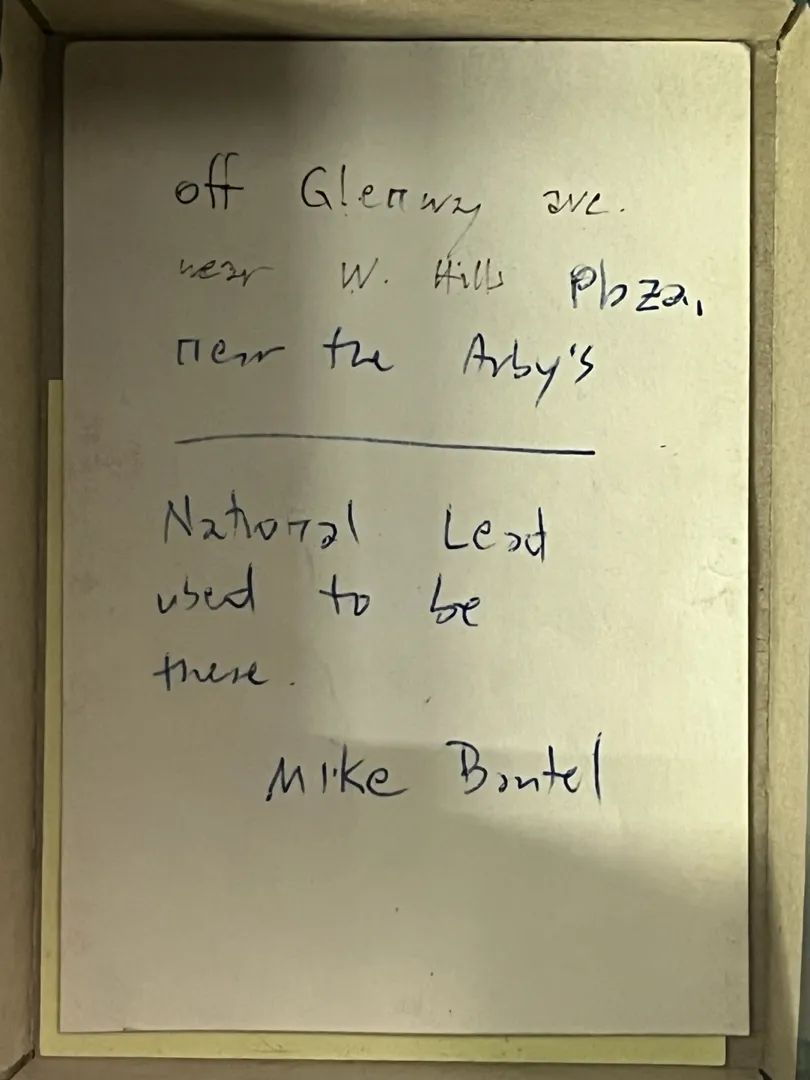 off Glenway ave.
near W. Hills Plaza,
near the Arby's
National Lead
used to be
there.
Mike Bantel